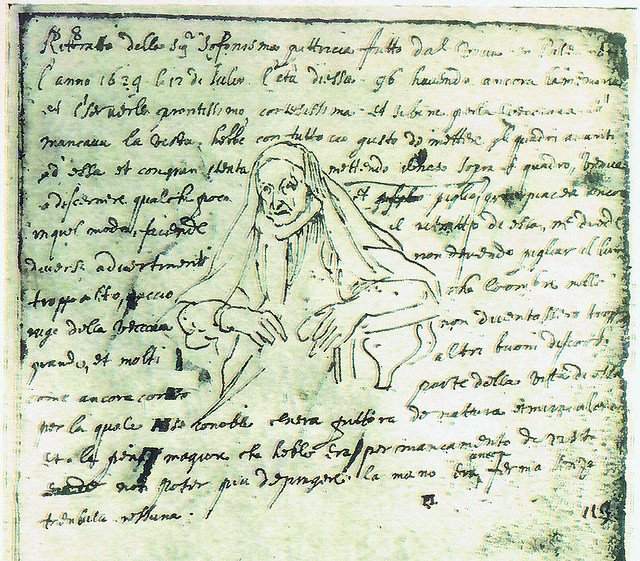 Rittratto della Sigra Sofonisma pittricia fatto dal vivo in Palermo
l'anno 1624 li 12 di Julio l'età di essa 96 havendo ancora la memoria
et il serverllo prontissimo, cortesissima et sebene per la vecciaia
mancava la vista, hebbe con tutto cio gusto de mettere gli quadri avanti
ad essa et con gran stenta mettendo il naso sopra il quadro, venne
a discernere qualche poco et piglio gran piacere ancora
in quel modo, facendo il ritratto di essa, me diede
diversi advertimenti non dovendo pigliar il lume
troppo alto, accio che l'ombre nelle
ruge della vecciaia non diventassero troppo
grande, et molti altri buoni discorsi
come ancora conto parte della vita di essa
per la quale conobbe che era pittora de natura et miraculosa
et la pena magiore che hebbe era per mancamento di vista
non poter piu depingere la mano era ancora ferma senza
tremula nessuna.